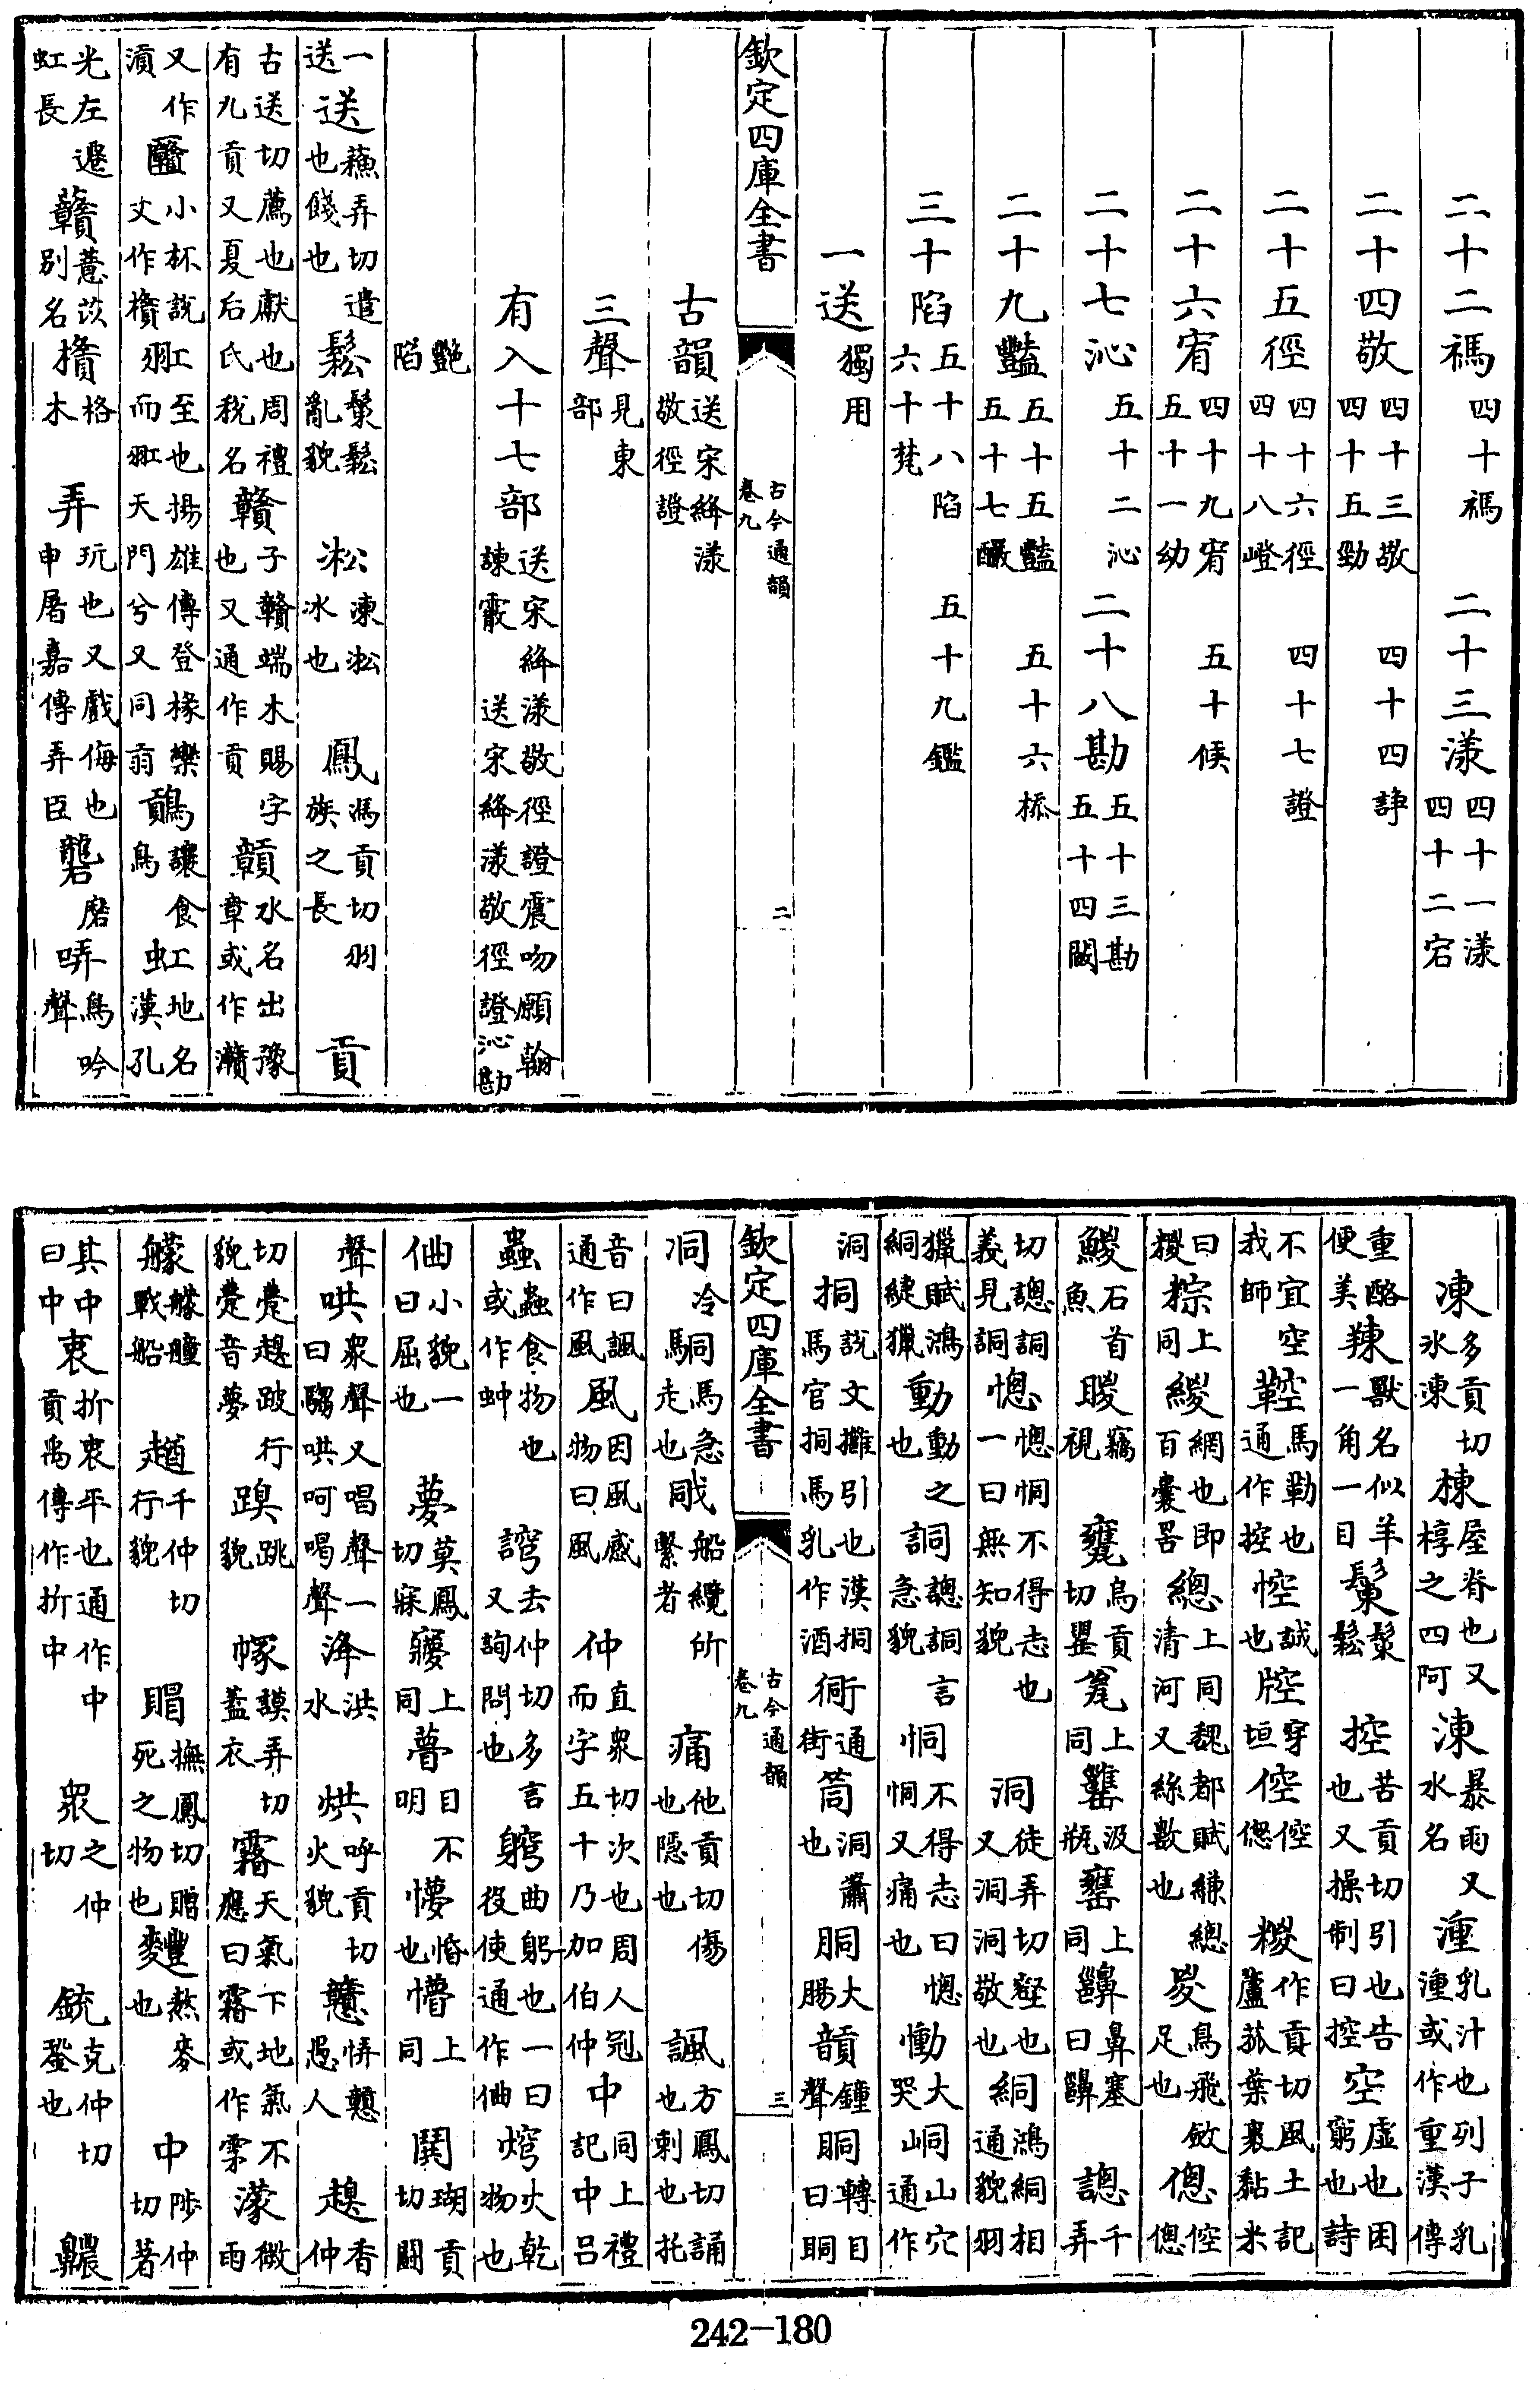 二十二禡四十禡 二十三漾四十一漾四十二宕
二十四敬四十三敬 四十四諍四十五勁
二十五徑四十六徑 四十七證四十八嶝
二十六宥四十九宥 五十候五十一幼
二十七沁五十二沁 二十八勘五十三勘五十四闞
二十九豔五十五豔 五十六㮇五十七釅
三十陷五十八陷 五十九鑑六十梵
一送獨用
欽定四庫全書 古今通韻卷九 二
古韻送宋絳漾敬徑證
三聲見東部
有入十七部送宋絳漾敬徑證震吻願翰諫霰 送宋絳漾敬徑證沁勘
艷陷
一送 送蘇弄切遣也餞也 鬆鬃鬆亂貌 凇凍凇冰也 鳳馮貢切羽族之長 貢
古送切薦也獻也周禮有九貢又夏后氏稅名 贛子贛端木賜字也又通作貢 贑水名出豫章或作灨
又作澒 小杯說文作㯯 㺬至也揚雄傳登椽欒而㺬天門兮又同 鳥讓食鳥 虹地名漢孔
光左遷虹長 贛薏苡別名 㯯格木 弄玩也又戲侮也申屠嘉傳弄臣 礱磨 哢鳥吟聲
凍多貢切水凍 棟屋脊也又椁之四阿 涷暴雨又水名 湩乳汁也列子乳湩或作重漢傳
重酪便美 䍶獸名似羊一角一目 鬃鬆 控苦貢切引也告也又操制曰控 空虛也困窮也詩
不宜空我師 鞚馬勒也通作控 悾誠也 腔穿垣 倥倥傯 糉作貢切風土記蘆菰葉裹黏米
曰糉 粽上同 緵網也即百囊罟 總上同魏都賦縑總清河又絲數也 㚇鳥飛斂足也 傯倥傯
鯼石首魚 䁓竊視 甕烏貢切罌 瓮上同 罋汲瓶 罋上同 齆鼻塞曰齆 謥千弄
切謥詷義見詷 愡愡恫不得志也一曰無知貌 洞徒弄切壑也又洞洞敬也 絧鴻絧相通貌羽
獵賦鴻絧緁獵 動動之也 詷謥詷言急貌 恫不得志曰愡恫又痛也 慟大哭 峒山穴通作
洞 挏說文攤引也漢挏馬官挏馬乳作酒 衕通街 筒洞簫也 胴大腸 鐘聲 眮轉目曰眮
欽定四庫全書 古今通韻卷九 三
冷 駧馬急走也 船纜所繫者 痛他貢切傷也隱也 諷方鳳切誦也刺也托
音曰諷通作風 風因風感物曰風 仲直眾切次也周人冠而字五十乃加伯仲 中同上禮記中呂
蟲蟲食物也或作蚛 𧪈去仲切多言又詢問也 躬曲躬也一曰役使通作 焪火乾物也
小貌一曰屈也 夢莫鳳切寐 㝱上同 瞢目不明 懜惛也 懵上同 鬨瑚貢切鬭
聲 哄眾聲又唱聲一曰騶哄呵喝聲 洚洪水 烘呼貢切火貌 戇愚人 趮香仲
切行貌 跳貌 幏謨弄切蓋衣 霧天氣下地氣不應曰霧或作雺 濛微雨
艨艨艟戰船 千仲切行貌 賵撫鳳切贈死之物也 麷熬麥也 中陟仲切著
其中曰中 衷折衷平也通作中貢禹傳作折中 眾之仲切 銃克仲切發也 齈
242-180